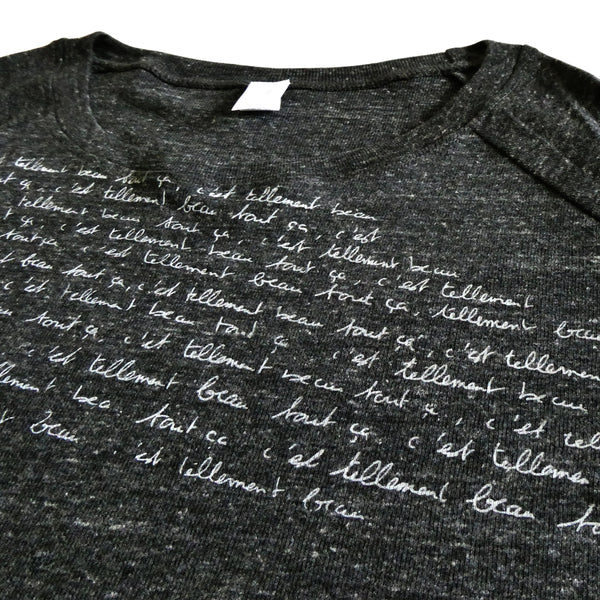 tellement beau tout ça, c'est tellement beau
tout ça, c'est tellement beau tout ça, c'est
tellement beau tout ça, c'est tellement beau
tout ça, c'est tellement beau tout ça, c'est tellement
beau tout ça, c'est tellement beau tout ça, tellement beau
c'est tellement beau tout ça, c'est tellement
beau tout ça, c'est tellement beau tout ça, c'est tellement beau
c'est tellement beau tout ça, c'est
tellement beau tout ça c'est tellement
beau c'est tellement beau